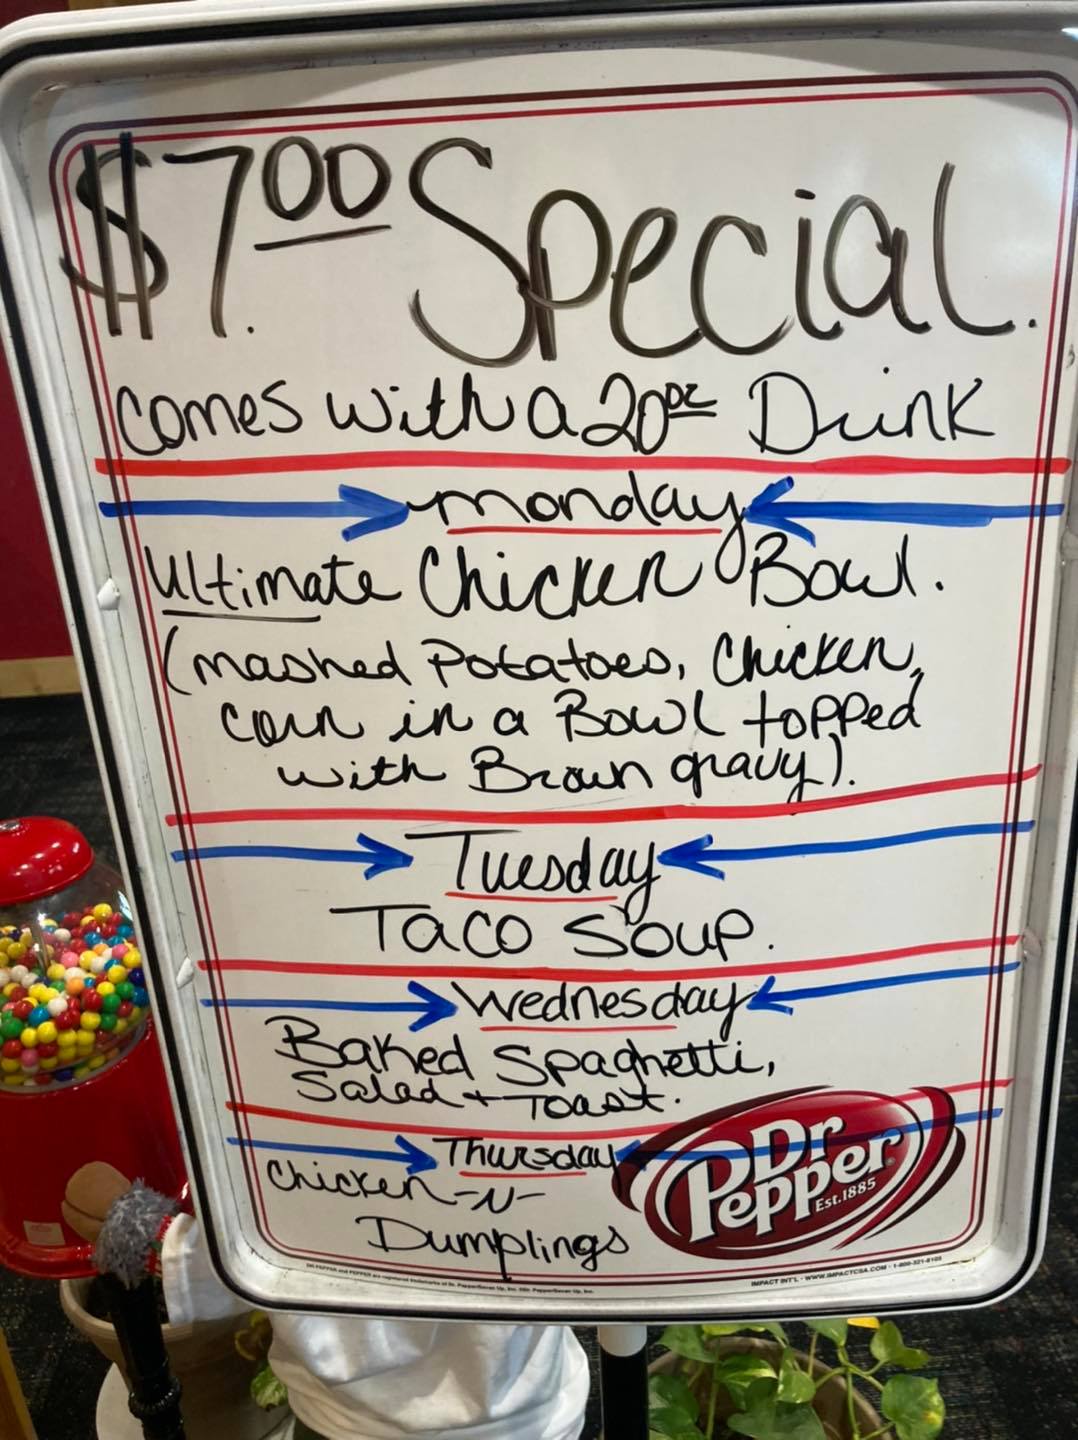 $7.00 Special.
comes with a 20oz Drink
monday
Ultimate Chicken Bowl.
(mashed Potatoes, Chicken,
corn in a Bowl topped
with Brown gravy).
Tuesday
Taco Soup.
Wednesday
Baked Spaghetti,
Salad + Toast.
Thursday
Chicken-N-
Dumplings
Dr
Pepper
Est.1885
IMPACT INT'L • WWW.IMPACTCSA.COM • 1-800-321-8105